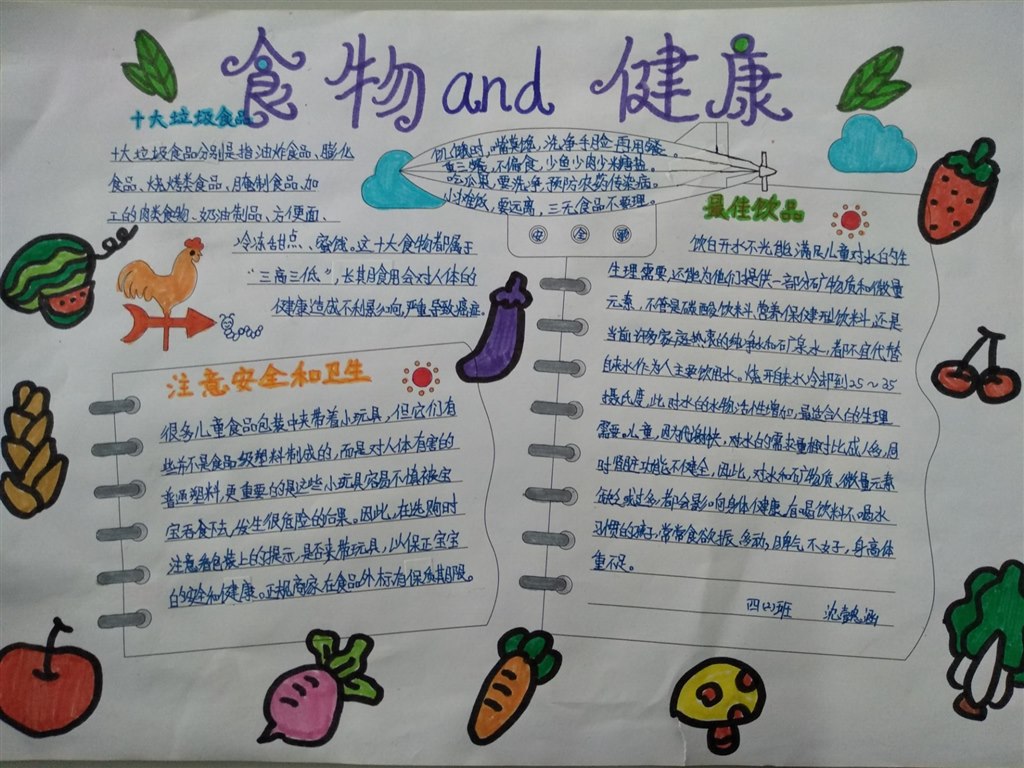 食物and健康
十大垃圾食品
十大垃圾食品分别是指油炸食品、膨化
食品、烧烤类食品、腌制食品、加
工的肉类食物、奶油制品、方便面、
冷冻甜点、蜜饯。这十大食物都属于
“三高三低”，长期食用会对人体的
健康造成不利影响，严重导致癌症。
饥饿时，嘴莫馋，洗净手脸再用餐。
重三餐，不偏食，少鱼少肉少米糖盐。
吃瓜果，要洗净，预防农药传染病。
小摊饭，要远离，三无食品不要理。
安 全
注意安全和卫生
很多儿童食品包装中夹带着小玩具，但它们有
些并不是食品级塑料制成的，而是对人体有害的
普通塑料，更重要的是这些小玩具容易不慎被宝
宝吞食下去，发生很危险的后果。因此，在选购时
注意看包装上的提示，是否夹带玩具，以保证宝宝
的安全和健康。正规商家在食品外标有保质期限。
最佳饮品
饮白开水不光能满足儿童对水的生
生理需要，还能为他们提供一部分矿物质和微量
元素，不管是碳酸饮料、营养保健型饮料，还是
当前许多家庭热衷的纯净水和矿泉水，都不宜代替
自来水作为人主要饮用水。烧开自来水冷却到25～35
摄氏度，此时水的生物活性增加，最适合人的生理
需要。儿童，因为代谢快，对水的需求量相对比成人多，同
时肾脏功能不健全，因此，对水和矿物质、微量元素
缺乏或过多，都会影响身体健康，有喝饮料不喝水
习惯的孩子，常常食欲不振、多动，脾气不好，身高体
重不足。
四(2)班 沈